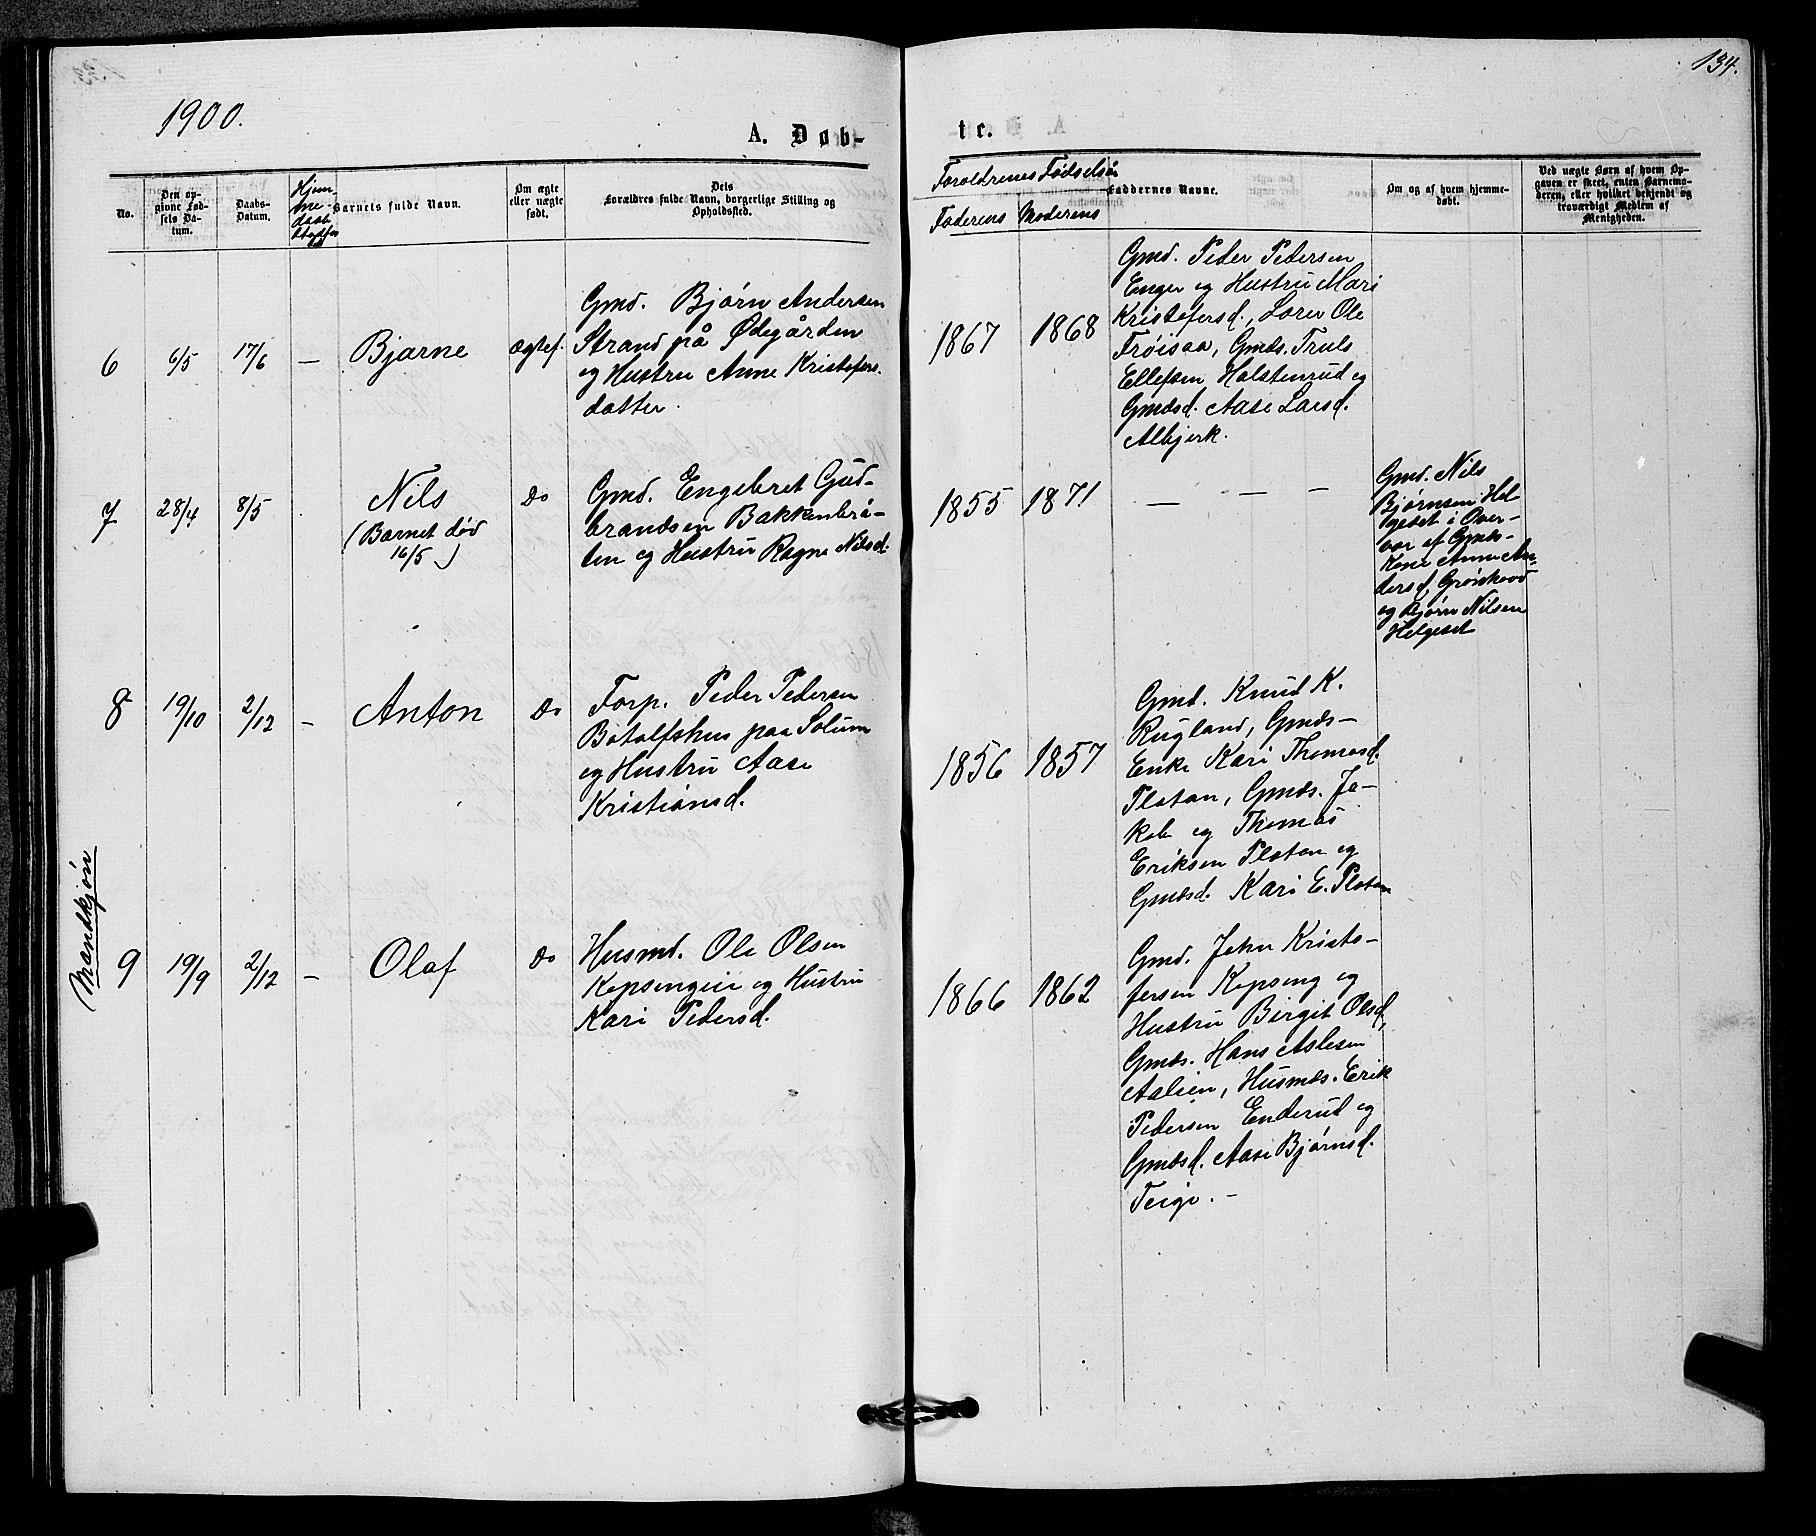 134.
1900.
A. Døb-
te.
No.
Den op-
givne Fød-
sels Da-
tum.
Daabs-
Datum.
Hjem-
me-
daab
Barnets fulde Navn.
Om ægte
eller uægte
født.
Dets
Forældres fulde Navn, borgerlige Stilling og
Opholdssted.
Forældrenes Fødselsår
Faderens
Moderens
Faddernes Navne.
Om og af hvem hjemme-
døbt.
Ved uægte Børn af hvem Op-
gaven er skeet, enten Barnemo-
deren, eller hvilket bekjendt og
troværdigt Medlem af
Menigheden.
Mandkjøn
6
6/5
17/6
—
Bjarne
ægtef.
Gmd. Bjørn Andersen
Strand på Ødegården
og Hustru Anne Kristofers-
datter.
1867
1868
Gmd. Peder Pedersen
Enger og Hustru Mari
Kristofersd., Lærer Ole
Frøisaa, Gmds. Truls
Ellefsen Holstenrud og
Gmdsd. Aase Larsd.
Albjerk.
7
28/4
8/5
Nils
(Barnet död
16/5)
Do
Gmd. Engebret Gud-
brandsen Bakkenbrå-
ten og Hustru Ragne Nilsd.
1855
1871
— — —
Gmd. Nils
Bjørnsen Hel-
geset i Over-
vær af Gmds-
Kone Anne An-
dersd. Grønhovd
og Bjørn Nilsen
Helgeset
8
19/10
2/12
—
Anton
Do
Forp. Peder Pedersen
Botolfshus paa Solum
og Hustru Aase
Kristiansd.
1856
1857
Gmd. Knud K.
Rugland, Gmds-
Enke Kari Thomasd.
Platon, Gmds. Ja-
kob og Thomas
Eriksen Platon og
Gmdsd. Kari E. Platon
9
19/9
2/12
—
Olaf
Do
Husmd. Ole Olsen
Kopsengeie og Hustru
Kari Pedersd.
1866
1862
Gmd. John Kristo-
fersen Kopseng og
Hustru Birgit Olsd,
Gmds. Hans Aslesen
Aalien, Husmds. Erik
Pedersen Enderud og
Gmdsd. Aase Bjørnsd.
Teige. —